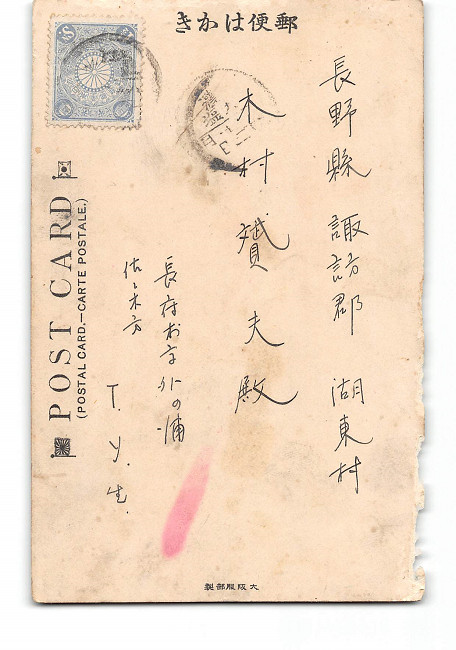 郵便はかき
長野縣 諏訪郡 湖東村
木村 贇夫殿
長府村字外の浦
佐々木方
T. y. 生.
POST CARD
(POSTAL CARD.—CARTE POSTALE.)
大阪服部製